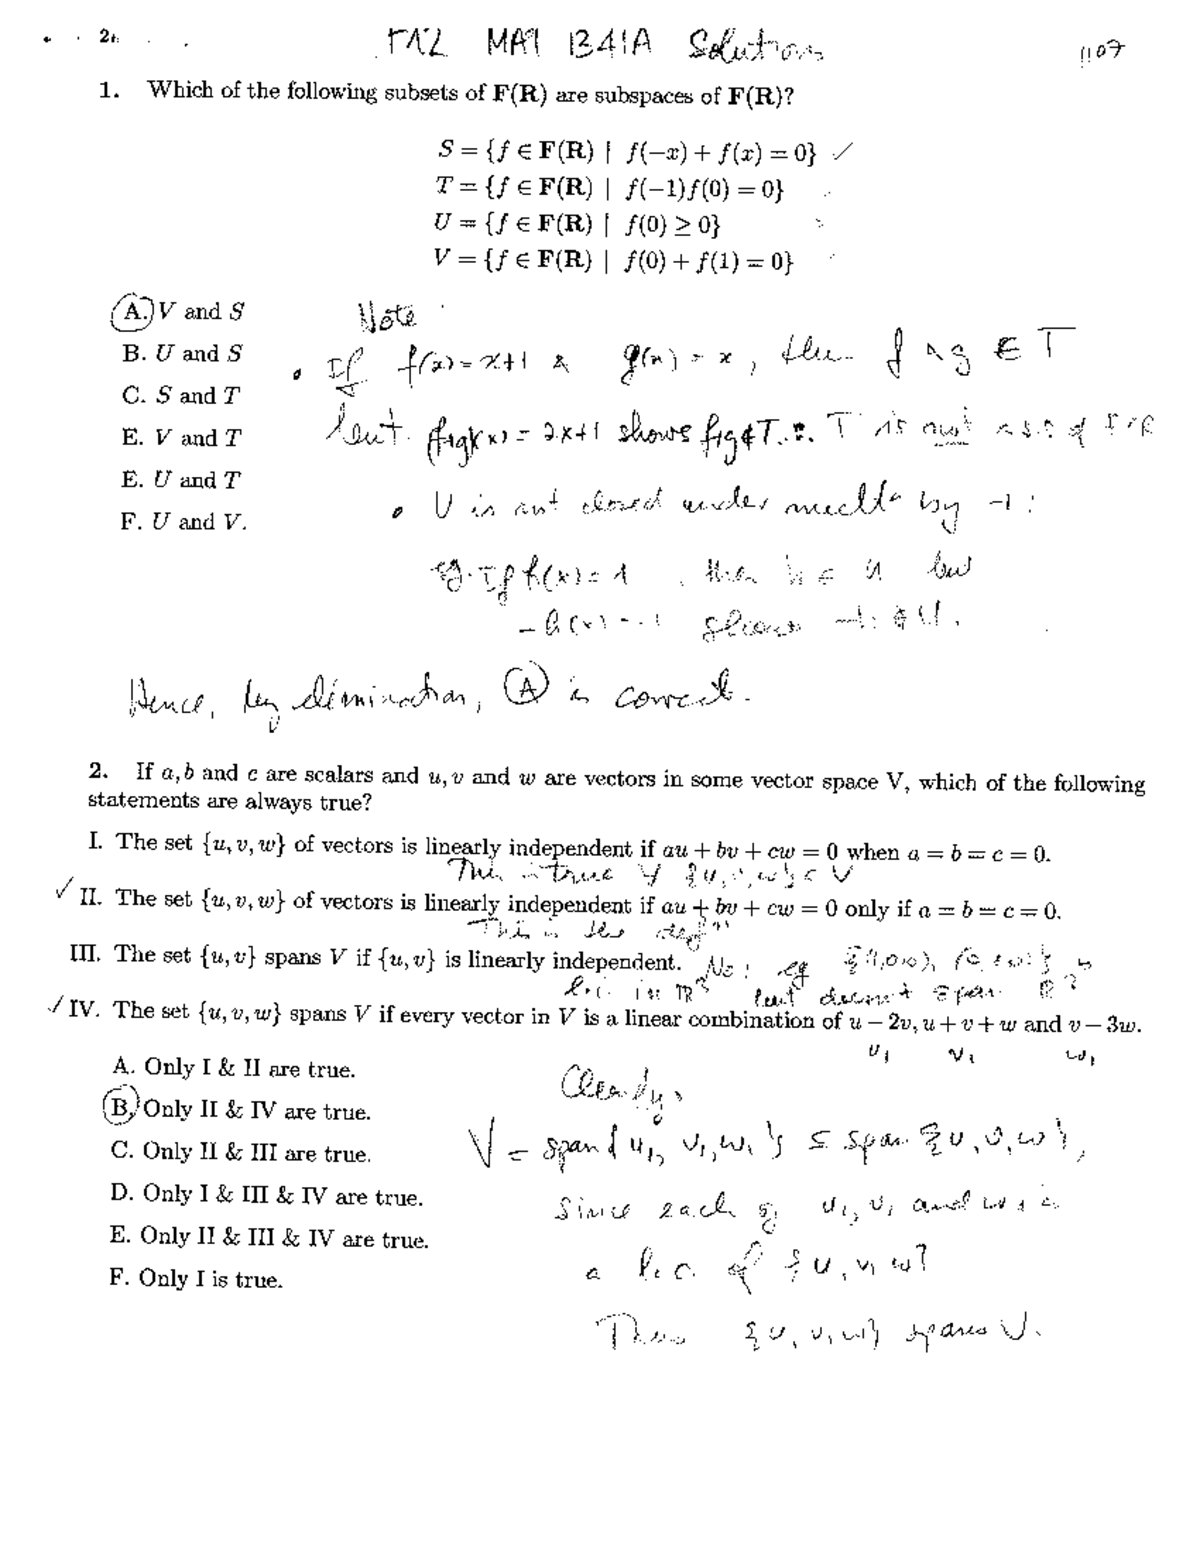 2.
MAT 1341A Solutions
1107
1. Which of the following subsets of F(R) are subspaces of F(R)?
S = {f ∈ F(R) | f(−x) + f(x) = 0} ✓
T = {f ∈ F(R) | f(−1)f(0) = 0}
U = {f ∈ F(R) | f(0) ≥ 0}
V = {f ∈ F(R) | f(0) + f(1) = 0}
A. V and S
Note
B. U and S
• If f(x) = x+1 & g(x) = x, then f, g ∈ T
C. S and T
but (f+g)(x) = 2x+1 shows f+g ∉ T ∴ T is not a s.s of F(R
E. V and T
E. U and T
• U is not closed under multn by −1:
F. U and V.
eg. If h(x) = 1, then h ∈ U but
−h(x) = −1 shows −h ∉ U.
Hence, by elimination, (A) is correct.
2. If a, b and c are scalars and u, v and w are vectors in some vector space V, which of the following
statements are always true?
I. The set {u, v, w} of vectors is linearly independent if au + bv + cw = 0 when a = b = c = 0.
This is true ∀ {u, v, w} ⊂ V
✓ II. The set {u, v, w} of vectors is linearly independent if au + bv + cw = 0 only if a = b = c = 0.
This is the defn
III. The set {u, v} spans V if {u, v} is linearly independent. No: eg {(1,0,0), (0,1,0)} is
l.i. in R³ but doesn't span R³
✓ IV. The set {u, v, w} spans V if every vector in V is a linear combination of u − 2v, u + v + w and v − 3w.
u₁ v₁ w₁
A. Only I & II are true.
Clearly,
B. Only II & IV are true.
V = span{u₁, v₁, w₁} ≤ span{u, v, w},
C. Only II & III are true.
D. Only I & III & IV are true.
since each of u₁, v₁ and w₁ is
E. Only II & III & IV are true.
a l.c. of {u, v, w}
F. Only I is true.
Thus {u, v, w} spans V.